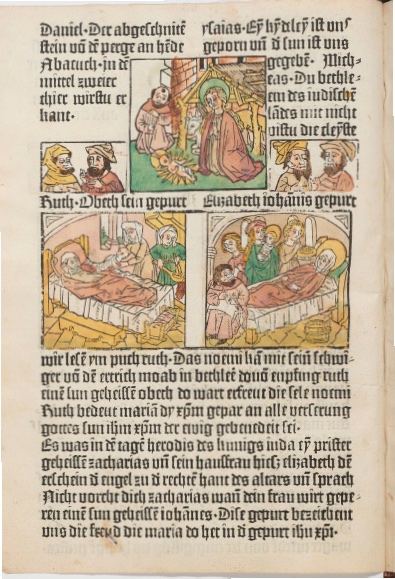 Daniel·Der abgeschnitē
stein vō dē perge an hēde
Abacuch·in dē
mittel zweier
thier wirstu er
kant·
ysaias·Ey kȳdlēy ist vnſ
geporn vñ d sun ist vns
gegebē· Mich-
eas·Du bethle-
em des iudischē
lādes nit nicht
pistu die cleyste
Ruth·Obeth sein gepurt
Elizabeth iohānis gepurt
wir lesē ym puch ruth·Das noemi kā mit seīn schwi-
ger vō dē ertrich moab in bethleē douō enpfing ruth
einē sun geheissē obeth do wart erfreut die sele noemi
Ruth bedeut mariā dy xp̄m gepar an alle verserung
gottes sun ihm xp̄m der ewig gebenedeit sei·
Es was in dē tagē herodis des kunigs iuda eȳ prister
geheissē zacharias vñ sein hausfrau hies elizabeth dē
erschein d engel zu d rechtē hant des altars vñ sprach
Nicht vorcht dich zacharias wan dein frau wirt gepe-
ren einē sun geheissē iohānes·Dise gepurt bezeichent
vns die freud die maria do het in d gepurt ihū xp̄i·